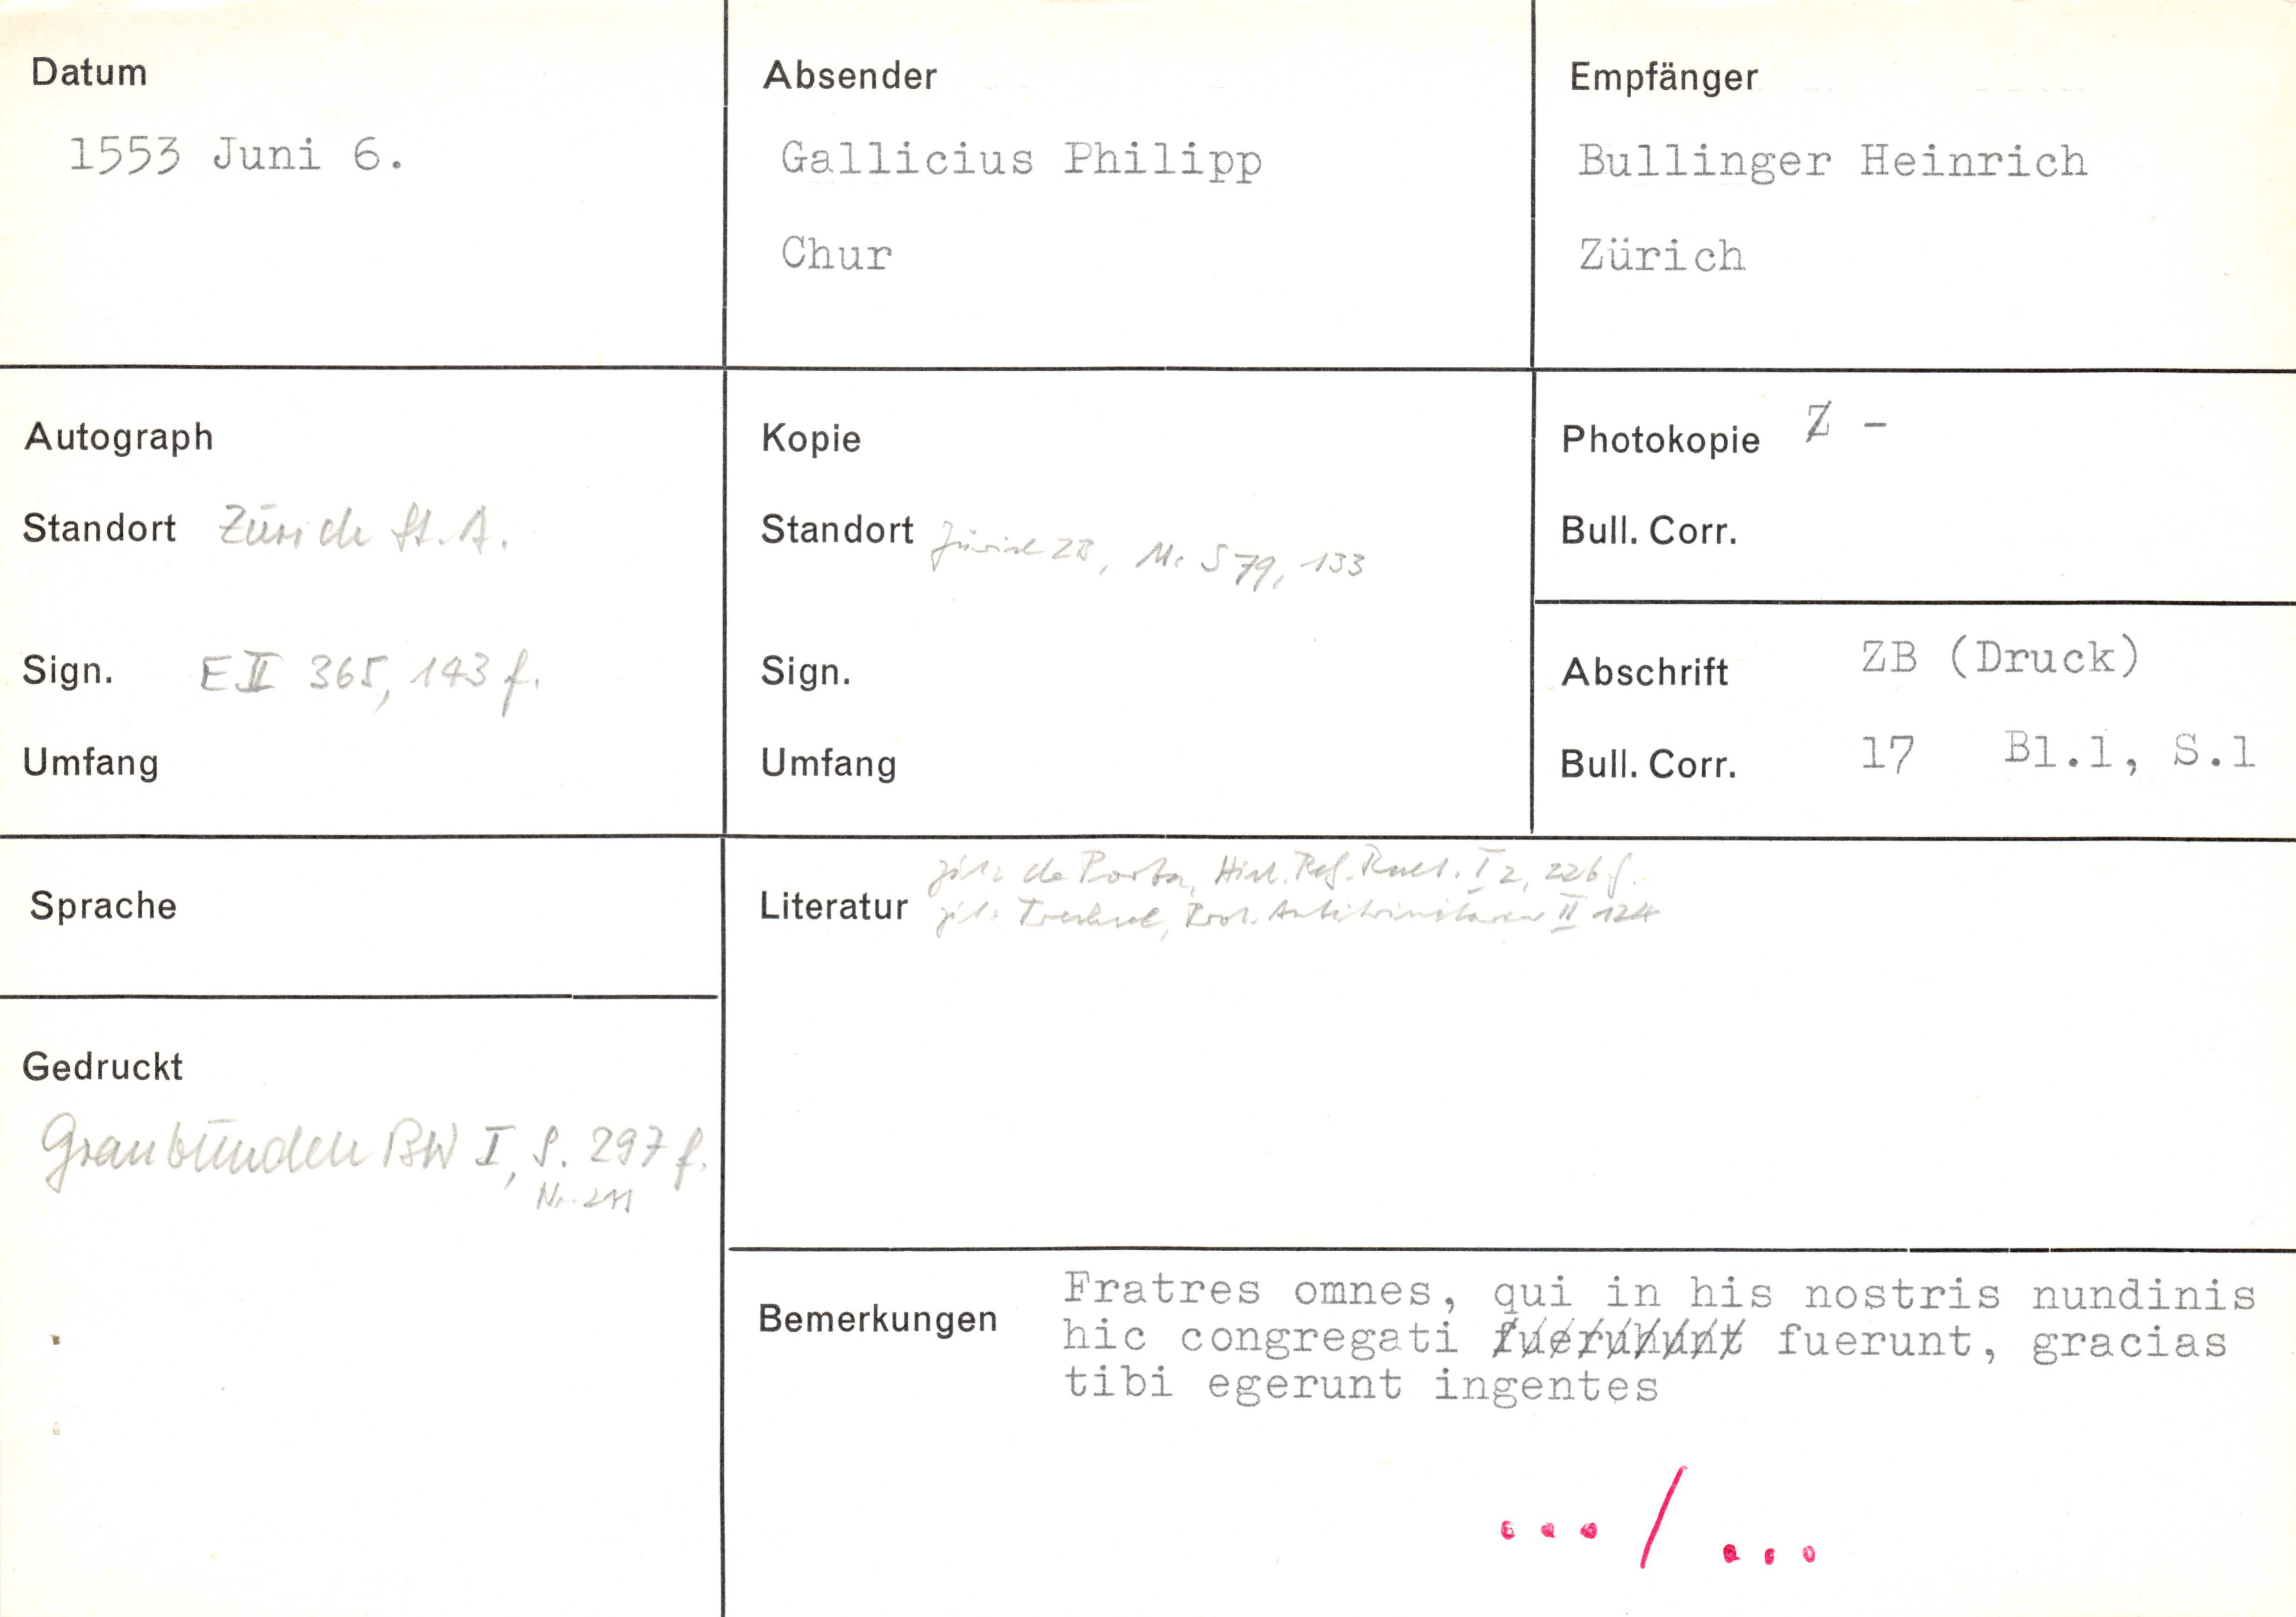 Datum
1553 Juni 6.
Absender
Gallicius Philipp
Chur
Empfänger
Bullinger Heinrich
Zürich
Autograph
Standort Zürich St. A.
Sign. E II 365, 143 f.
Umfang
Kopie
Standort Zürich ZB, Ms S 79, 133
Sign.
Umfang
Photokopie Z -
Bull. Corr.
Abschrift ZB (Druck)
Bull. Corr. 17 Bl.1, S.1
Sprache
Literatur
zit: de Porta, Hist. Ref. Raet. I 2, 226 f.
zit: Trechsel, Prot. Antitrinitarier II 124
Gedruckt
Graubünden BW I, S. 297 f.
Nr. 211
Bemerkungen
Fratres omnes, qui in his nostris nundinis
hic congregati fuerunt, gracias
tibi egerunt ingentes
... / ...